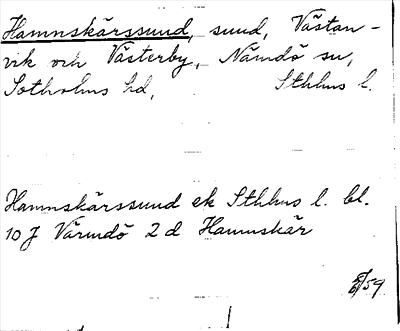 Hamnskärssund, sund, Västan-
vik och Västerby, Nämdö sn,
Sotholms hd, Sthlms l.
Hamnskärssund ek Sthlms l. bl.
10 J Värmdö 2 d Hamnskär
/59